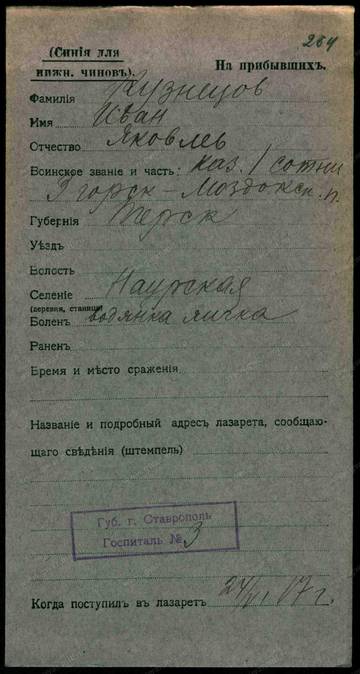 264
(Синія для
нижн. чиновъ).
На прибывшихъ.
Фамилія Кузнецов
Имя Иван
Отчество Яковлев
Воинское званіе и часть: каз. 1 сотни
3 горск-Моздокск. п.
Губернія Терск
Уѣздъ
Волость
Селеніе Наурская
(деревня, станица)
Боленъ водянка яичка
Раненъ
Время и мѣсто сраженія
Названіе и подробный адресъ лазарета, сообщаю-
щаго свѣдѣнія (штемпель)
Губ. г. Ставрополь
Госпиталь № 3
Когда поступилъ въ лазаретъ 24/VI 17 г.